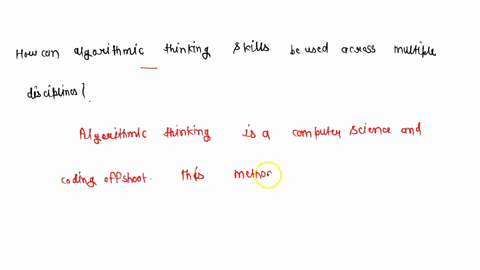 How can algorithmic thinking skills be used across multiple
disciplines?
Algorithmic thinking is a computer science and
coding offshoot. this method